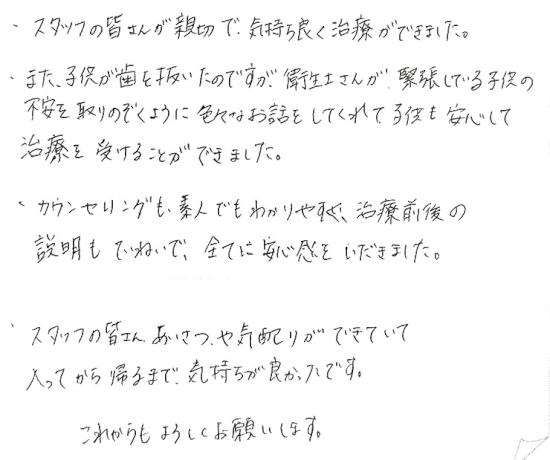 ・スタッフの皆さんが親切で、気持ち良く治療ができました。
・また、子供が歯を抜いたのですが、衛生士さんが、緊張している子供の
不安を取りのぞくように色々なお話をしてくれて、子供も安心して
治療を受けることができました。
・カウンセリングも、素人でもわかりやすく、治療前後の
説明もていねいで、全てに安心感をいだきました。
・スタッフの皆さん、あいさつや気配りができていて
入ってから帰るまで、気持ちが良かったです。
これからもよろしくお願いします。